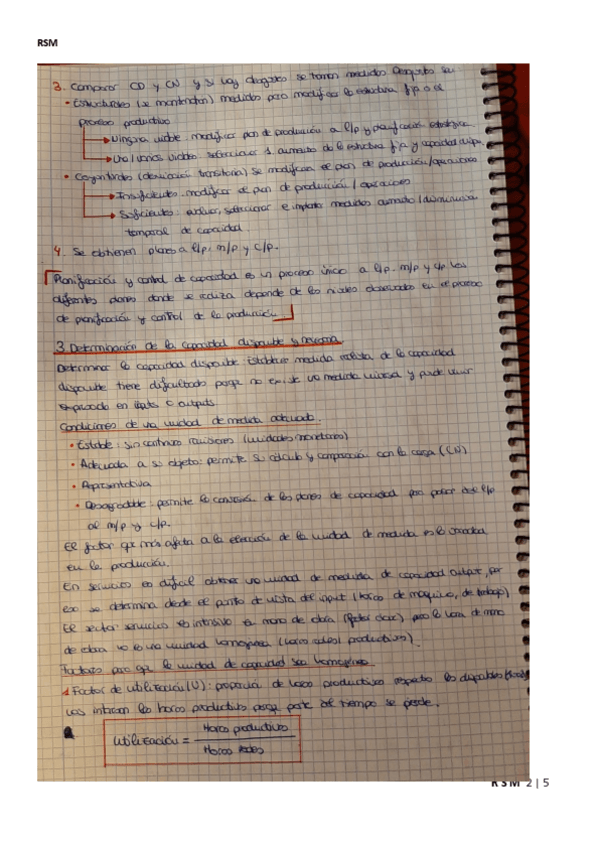 RSM
3. Comparar CD y CN y si hay desajustes se toman medidas Desajustes son
• Estructurales (se mantendrán) medidas para modificar la estructura fija o el
proceso productivo
Ninguna viable: modificar plan de producción a l/p y planificación estratégica
Una/varias viables: seleccionar 1. aumento de la estructura fija y capacidad disp.
• Coyunturales (desviación transitoria) se modifican el plan de producción/operaciones
Insuficientes: modificar el plan de producción / operaciones
Suficientes: evaluar, seleccionar e implantar medidas aumento/disminución
temporal de capacidad
4. Se obtienen planes a l/p, m/p y c/p.
Planificación y control de capacidad es un proceso único a l/p, m/p y c/p. Los
diferentes planes donde se realiza depende de los niveles en el proceso
de planificación y control de la producción
3. Determinación de la capacidad disponible y necesaria
Determinar la capacidad disponible Establecer medida realista de la capacidad
disponible tiene dificultades porque no existe una medida universal y puede venir
expresado en inputs o outputs
Condiciones de una unidad de medida adecuada.
• Estable: sin continuas revisiones (unidades monetarias)
• Adecuada a su objeto: permite su cálculo y comparación con la carga (CN)
• Representativa
• Desagregable: permite la conversión de los planes de capacidad para pasar del l/p
al m/p y c/p.
El factor que más afecta a la elección de la unidad de medida es la variedad
en la producción.
En servicios es difícil obtener una unidad de medida de capacidad output, por
eso se determina desde el punto de vista del input (horas de maquina, de trabajo)
El sector servicios es intensivo en mano de obra (factor clave) pero la hora de mano
de obra no es una unidad homogénea (horas productivas).
Factores para que la unidad de capacidad sea homogénea
Factor de utilización (U): proporción de horas productivas respecto las disponibles
las horas productivas porque parte del tiempo se pierde.
Utilización = Horas productivas
Horas reales
RSM 2 | 5